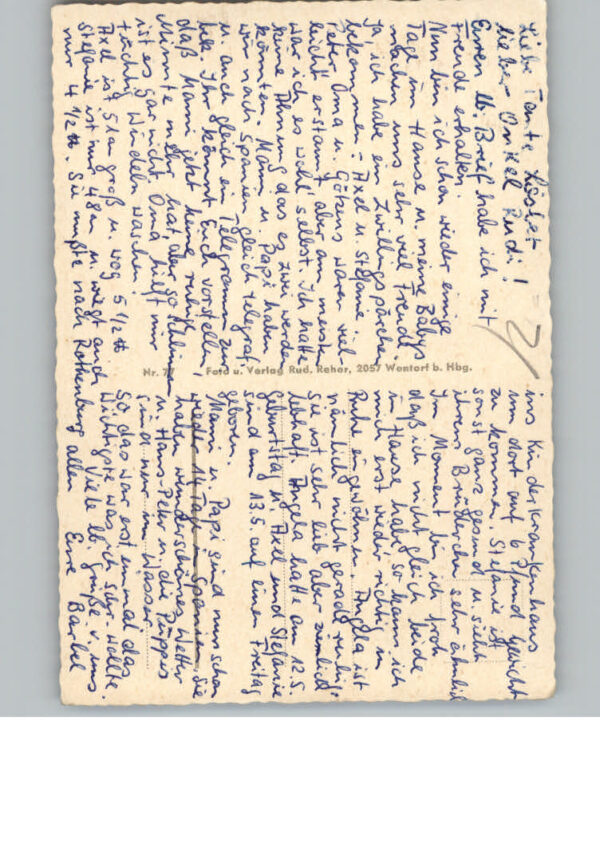 Liebe Tante Lösbet
lieber Onkel Rudi!
Euren lb. Brief habe ich mit
Freude erhalten.
Nun bin ich schon wieder einige
Tage im Hause u. meine Babys
machen uns sehr viel Freude.
Ja, ich habe ein Zwillingspärchen
bekommen – Axel u. Stefanie –
Peter, Oma u. Götzens waren viel-
leicht erstaunt, aber am meisten
war ich es wohl selbst. Ich hatte
keine Ahnung das es zwei werden
könnten. Mami u. Papi haben
wir nach Spanien gleich telegraf.
u. auch gleich ein Telegramm zu-
rück. Ihr könnt Euch vorstellen,
daß Mami jetzt keine ruhige
Minute mehr hat, aber so schlimm
ist es gar nicht. Oma hilft mir
tüchtig Windeln waschen!
Axel ist 51 cm groß u. wog 5 1/2 ℔
Stefanie ist nur 48 cm u. wiegt auch
nur 4 1/2 ℔. Sie mußte nach Rothenburg
ins Kinderkrankenhaus
um dort auf 6 Pfund Gewicht
zu kommen. Stefanie ist
sonst ganz gesund u. sieht
ihrem Brüderchen sehr ähnlich
Im Moment bin ich froh
daß ich nicht gleich beide
im Hause habe, so kann ich
mich erst wieder richtig in
Ruhe eingewöhnen. Angela ist
nämlich nicht gerade ruhig.
Sie ist sehr lieb aber ziemlich
lebhaft. Angela hatte am 12.5.
Geburtstag u. Axel und Stefanie
sind am 13.5. auf einen Freitag
geboren.
Mami u. Papi sind nun schon
wieder 14 Tage in Spanien. Sie
haben wunderschönes Wetter
u. Hans-Peter u. die
sind nur im Wasser.
So, das war erst einmal das
Wichtigste was ich schr. wollte.
Viele lb. Grüße v. uns
allen Eure Bärbel
Nr. 77 Foto u. Verlag Rud. Reher, 2057 Wentorf b. Hbg.